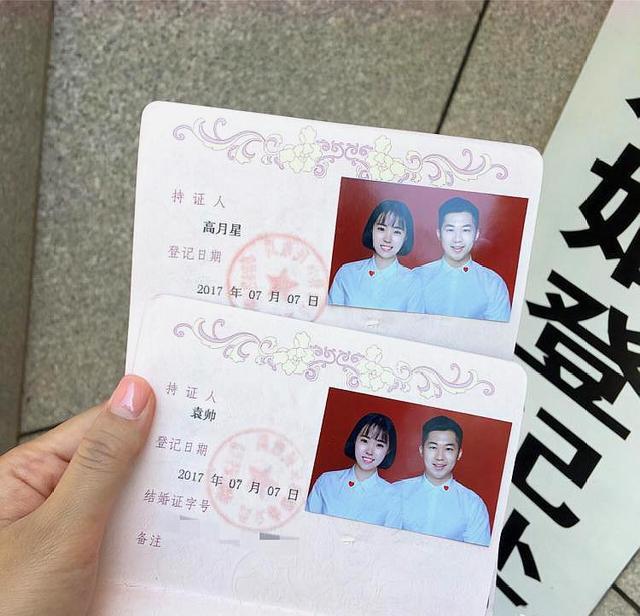 持证人
高月星
登记日期
2017 年 07 月 07 日
持证人
袁帅
登记日期
2017 年 07 月 07 日
结婚证字号
备注
登记